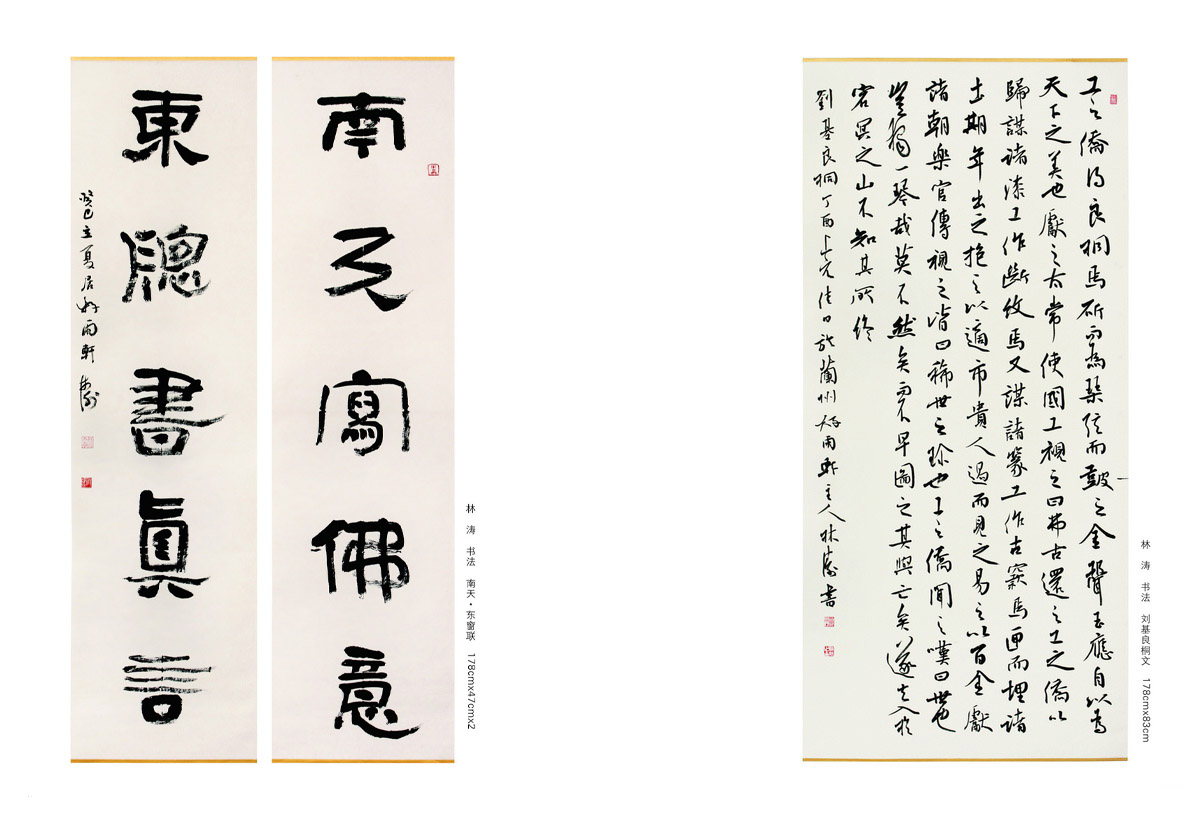 南天寫佛意
東牕書眞言
癸巳立夏居好雨軒 林濤
林 涛 书法 南天·东窗联 178cmx47cmx2
工之僑得良桐焉斫而為琴弦而鼓之金聲玉應自以為
天下之美也獻之太常使國工視之曰弗古還之工之僑以
歸謀諸漆工作斷紋焉又謀諸篆工作古窾焉匣而埋諸
土期年出之抱之以適市貴人過而見之易之以百金獻
諸朝樂官傳視之皆曰稀世之珍也工之僑聞之嘆曰世也
豈獨一琴哉莫不然矣而不早圖之其與亡矣遂去入於
宕冥之山不知其所終
劉基良桐丁酉上元佳日於蘭州好雨軒主人林濤書
林 涛 书法 刘基良桐文 178cmx83cm